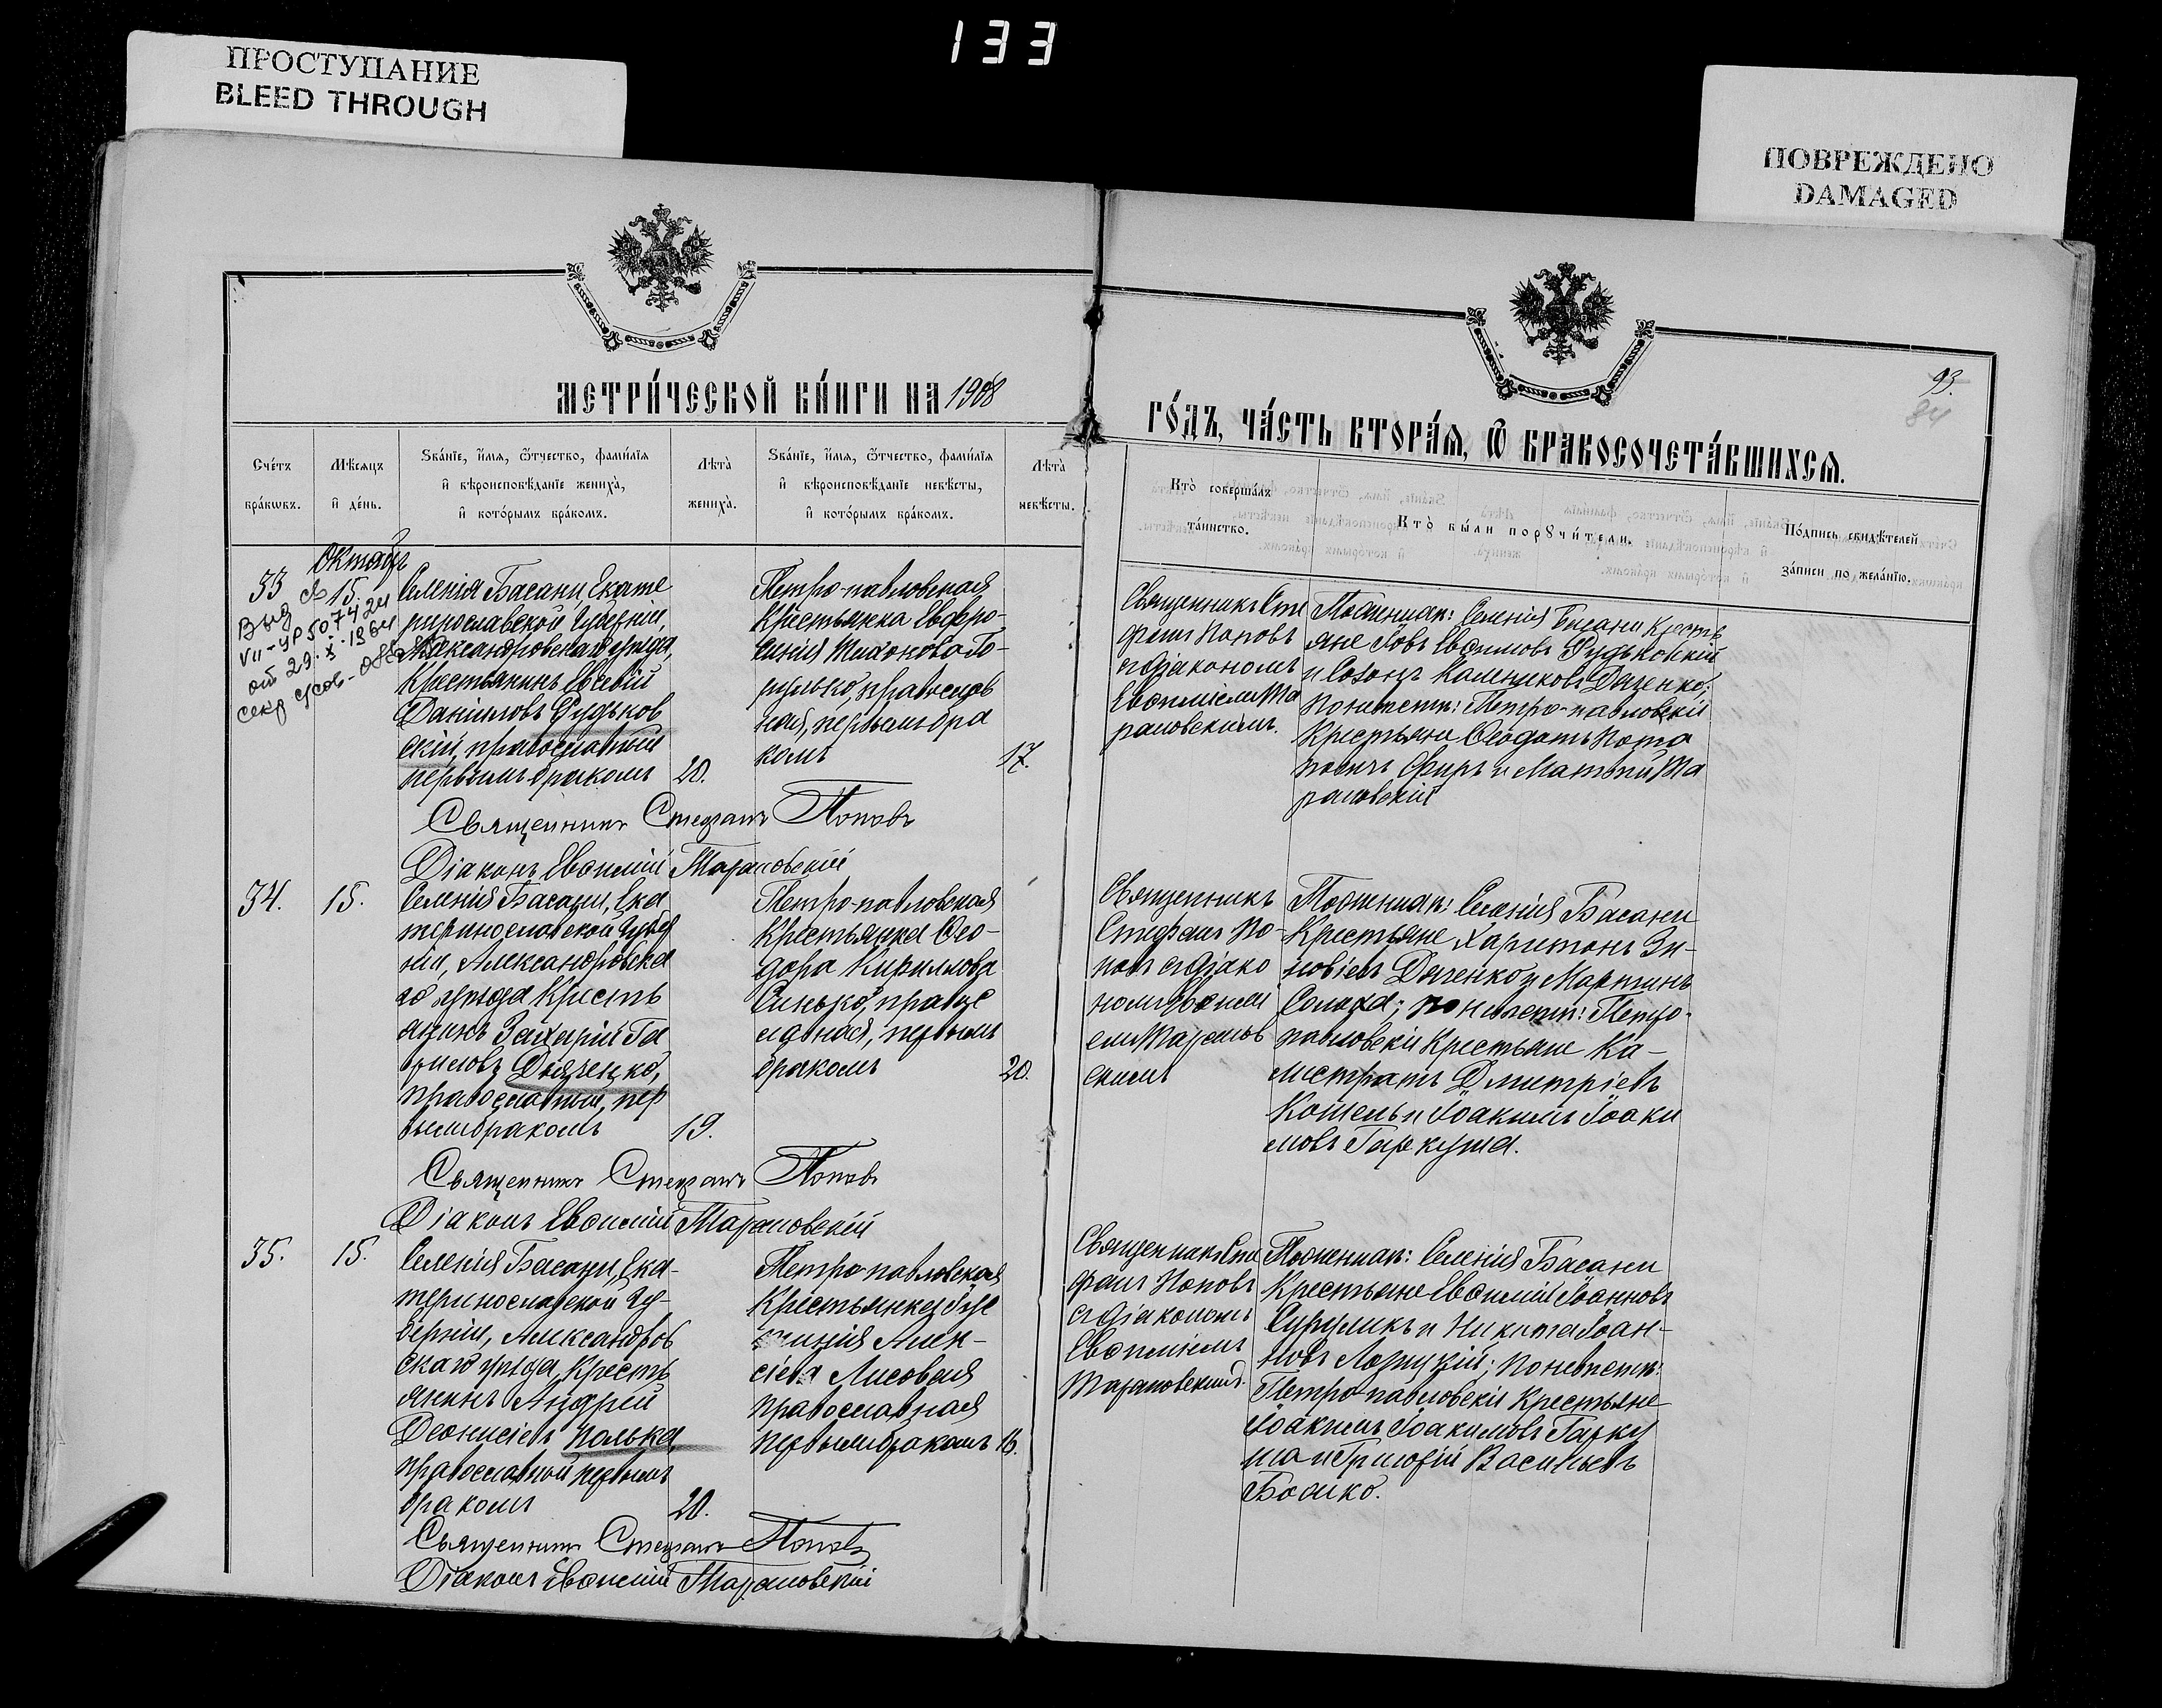 133
ПРОСТУПАНИЕ
BLEED THROUGH
ПОВРЕЖДЕНО
DAMAGED
МЕТРИ́ЧЕСКОЙ КНИ́ГИ НА 1908
ГО́ДЪ, ЧА́СТЬ ВТОРА́Я, Ѡ БРАКОСОЧЕТА́ВШИХСЯ.
93.
84
Сче́тъ
бра́кѡвъ.
Мѣ́сяцъ
и҆ де́нь.
Ѕва́нїе, и҆́мѧ, ѻ҆́тчество, фами́лїѧ
и҆ вѣроисповѣ́данїе жениха̀,
и҆ кото́рымъ бра́комъ.
Лѣта̀
жениха̀.
Ѕва́нїе, и҆́мѧ, ѻ҆́тчество, фами́лїѧ
и҆ вѣроисповѣ́данїе невѣ́сты,
и҆ кото́рымъ бра́комъ.
Лѣта̀
невѣ́сты.
Кто̀ соверша́лъ
та́инство.
Кто̀ бы́ли порꙋчи́тели.
По́дпись свидѣ́телей
за́писи по жела́нїю.
Октябр
33
15.
Выд св
VII-УР 507424
от 29.X.1964
секр
Селенія Басани Екате
ринославской Губерніи,
Александровскаго уѣзда,
Крестьянинъ Евсевій
Даніиловъ Рудьков
скій, православный
первымъ бракомъ
20.
Петро-павловская
Крестьянка Евфро-
синія Тихонова Го-
рулько, православ
ная, первымъ бра
комъ
17.
Священникъ Сте
фанъ Поповъ
съ діакономъ
Евѳиміемъ Та
рановскимъ.
По женихѣ: Селенія Басани Кресть
яне Іовъ Евѳимовъ Рудьковскій
и Созонъ Калениковъ Даценко;
По невѣстѣ: Петро-павловскіе
Крестьяне Ѳеодотъ Пота
повичъ и Матѳій Та
рановскій
Священникъ Стефанъ Поповъ
Діаконъ Евѳимій Тарановскій
34.
15.
Селенія Басани, Ека
теринославской Губер
ніи, Александровска
го уѣзда Кресть
янинъ Захарій Га
вриловъ Дьяченко,
православный, пер
вымъ бракомъ
19.
Петро-павловская
Крестьянка Ѳео-
дора Кириллова
Синько, правос
лавная, первымъ
бракомъ
20.
Священникъ
Стефанъ По-
повъ съ діако
номъ Евѳимі
емъ Таранов
скимъ
По женихѣ: Селенія Басани
Крестьяне Харитонъ Зи-
новіевъ Дяченко и Мартинъ
Солоха; по невѣстѣ: Петро-
павловскіе Крестьяне Ка-
листратъ Дмитріевъ
Кошель и Іоакимъ Іоаки
мовъ Гаркуша.
Священникъ Стефанъ Поповъ
Діаконъ Евѳимій Тарановскій
35.
15.
Селенія Басани, Ека-
теринославской Гу-
берніи, Александров
скаго уѣзда, Кресть
янинъ Андрей
Деонисіевъ Полька
православной первымъ
бракомъ
20.
Петро-павловская
Крестьянка
Алек-
сіева Лисовая
православная
первымъ бракомъ
16.
Священникъ Сте
фанъ Поповъ
съ діакономъ
Евѳиміемъ
Тарановскимъ.
По женихѣ: Селенія Басани
Крестьяне Евѳимій Іоанновъ
и Никита Іоан-
новъ Лозицкій; По невѣстѣ:
Петро-павловскіе Крестьяне
Іоакимъ Іоакимовъ Гарку
ша и Григорій Васильевъ
Бойко.
Священникъ Стефанъ Поповъ
Діаконъ Евѳимій Тарановскій